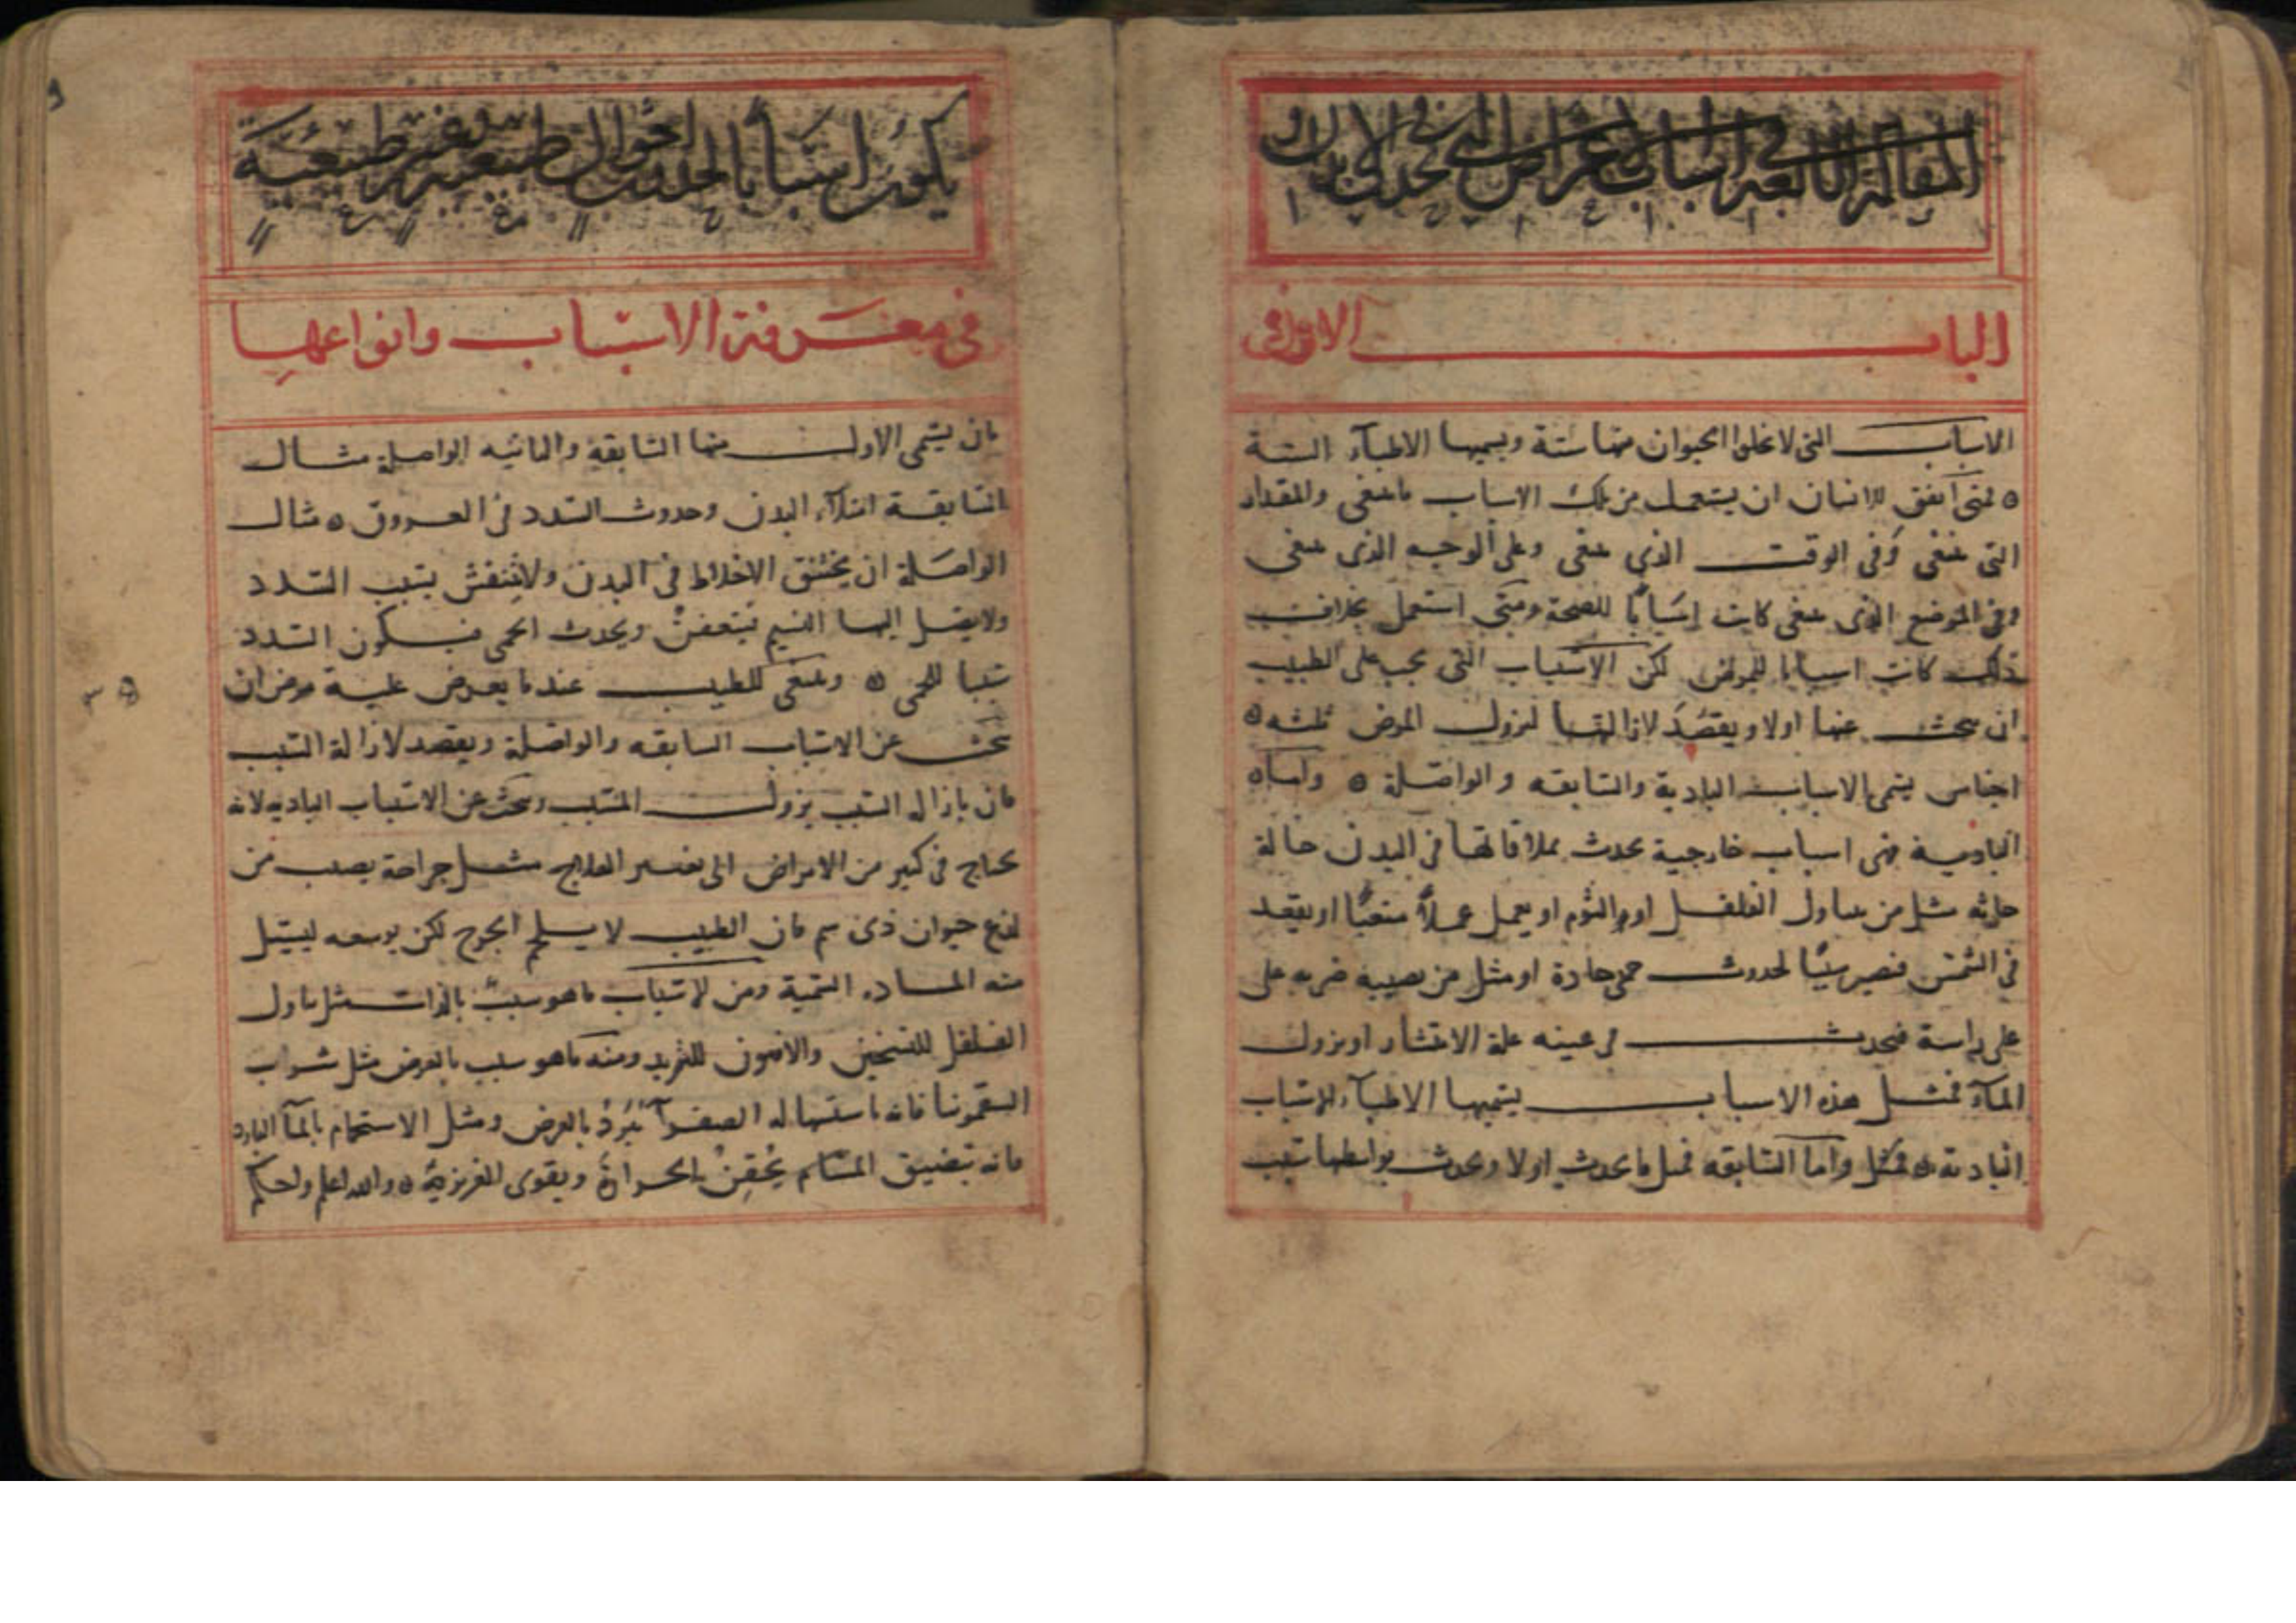 المقالة الرابعة في اسباب الاعراض التي تحدث في الابدان او
الباب الاول في
الاسباب التي لا تخلوا الحيوان منها ستة ويسميها الاطبآء الستة
فمتى اتفق للانسان ان يستعمل من تلك الاسباب ماينبغى والمقدار
التى ينبغى وفى الوقت الذي ينبغى وعلى الوجه الذى ينبغى
وفى الموضع الذى ينبغى كانت اسبابًا للصحة ومتى استعمل بخلاف
ذلك كانت اسبابا للمرض لكن الاسباب التى يجب على الطبيب
ان يبحث عنها اولا ويقصد لازالتها ليزول المرض ثلثه
اجناس يسمى الاسباب البادية والسابقه والواصلة واما
البادية فهى اسباب خارجية يحدث بملاقاتها فى البدن حالة
حارثه مثل من يتناول الفلفل او الثوم او يعمل عملاً متعبًا او يقعد
فى الشمس فيصير سببًا لحدوث حمى حادة او مثل من يصيبه ضربه على
على راسة فيحدث فى عينه علة الانتشار او نزول
المآء فمثل هذه الاسباب يسميها الاطبآء الاسباب
البادية فمثل واما السابقه فمثل مايحدث اولا ويحدث بواسطها سبب
يكون اسبابا لحدوث احوال طبيعية وغير طبيعية
فى معرفة الاسباب وانواعها
فان يسمى الاول منها السابقة والثانيه الواصلة مثال
السابقة امتلآء البدن وحدوث السدد فى العروق مثال
الواصلة ان يختنق الاخلاط فى البدن ولايتنفش بسبب السدد
ولايصل اليها النسيم فيتعفن ويحدث الحمى فيكون السدد
سببا للحمى وينبغى للطبيب عند ما يعرض علية مرض ان
يبحث عن الاسباب السابقه والواصلة ويقصد لازالة السبب
فان بازاله السبب يزول المسبب ويبحث عن الاسباب الباديه لانه
يحتاج فى كثير من الامراض الى تغيير العلاج مثل جراحة يصيب من
لدغ حيوان ذى سم فان الطبيب لا يلحم الجرح لكن يوسعه ليسيل
منه المادة السمية ومن الاسباب ماهو سبب بالذات مثل تناول
الفلفل للتسخين والافيون للتبريد ومنه ماهو سبب بالعرض مثل شراب
السقمونيا فانه باستسهاله الصفرآ تبرد بالعرض ومثل الاستحمام بالمآ البارد
فانه بتضييق المسام يحقن الحرارة ويقوى الغريزية والله اعلم واحكم